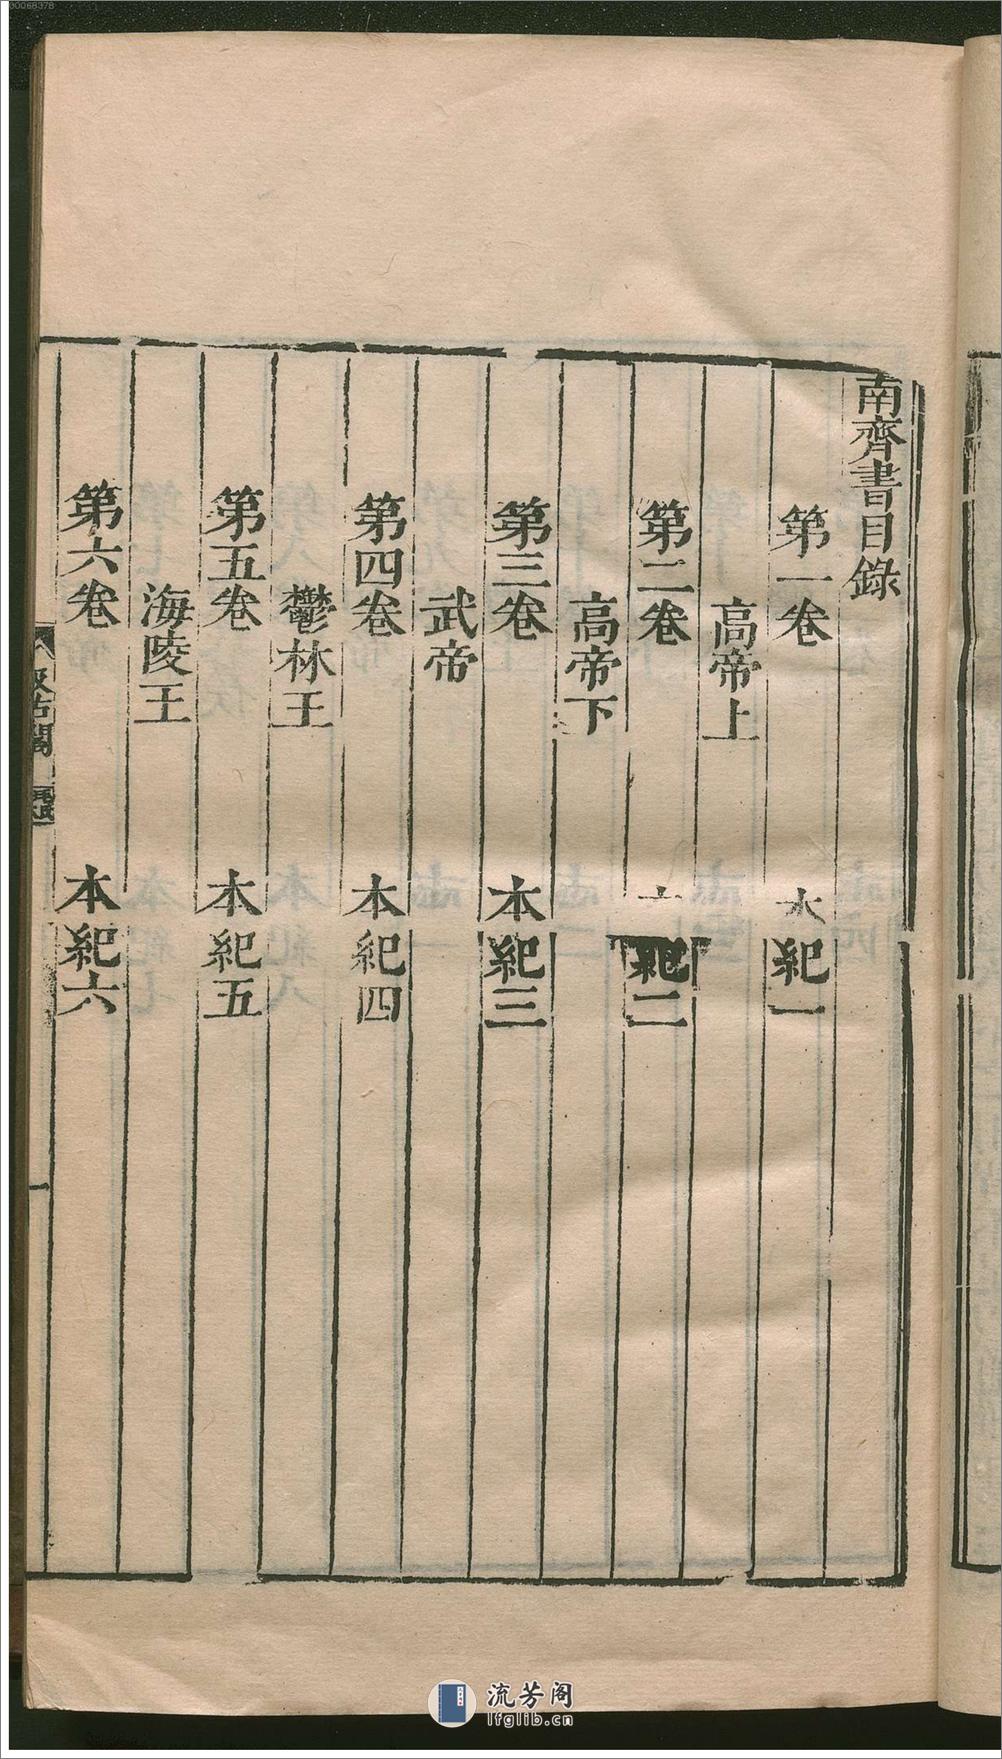 南齊書目錄
第一卷 本紀一
高帝上
第二卷 紀二
高帝下
第三卷 本紀三
武帝
第四卷 本紀四
鬱林王
第五卷 本紀五
海陵王
第六卷 本紀六
汲古閣
毛氏
一
流芳阁
lfglib.cn
00068378